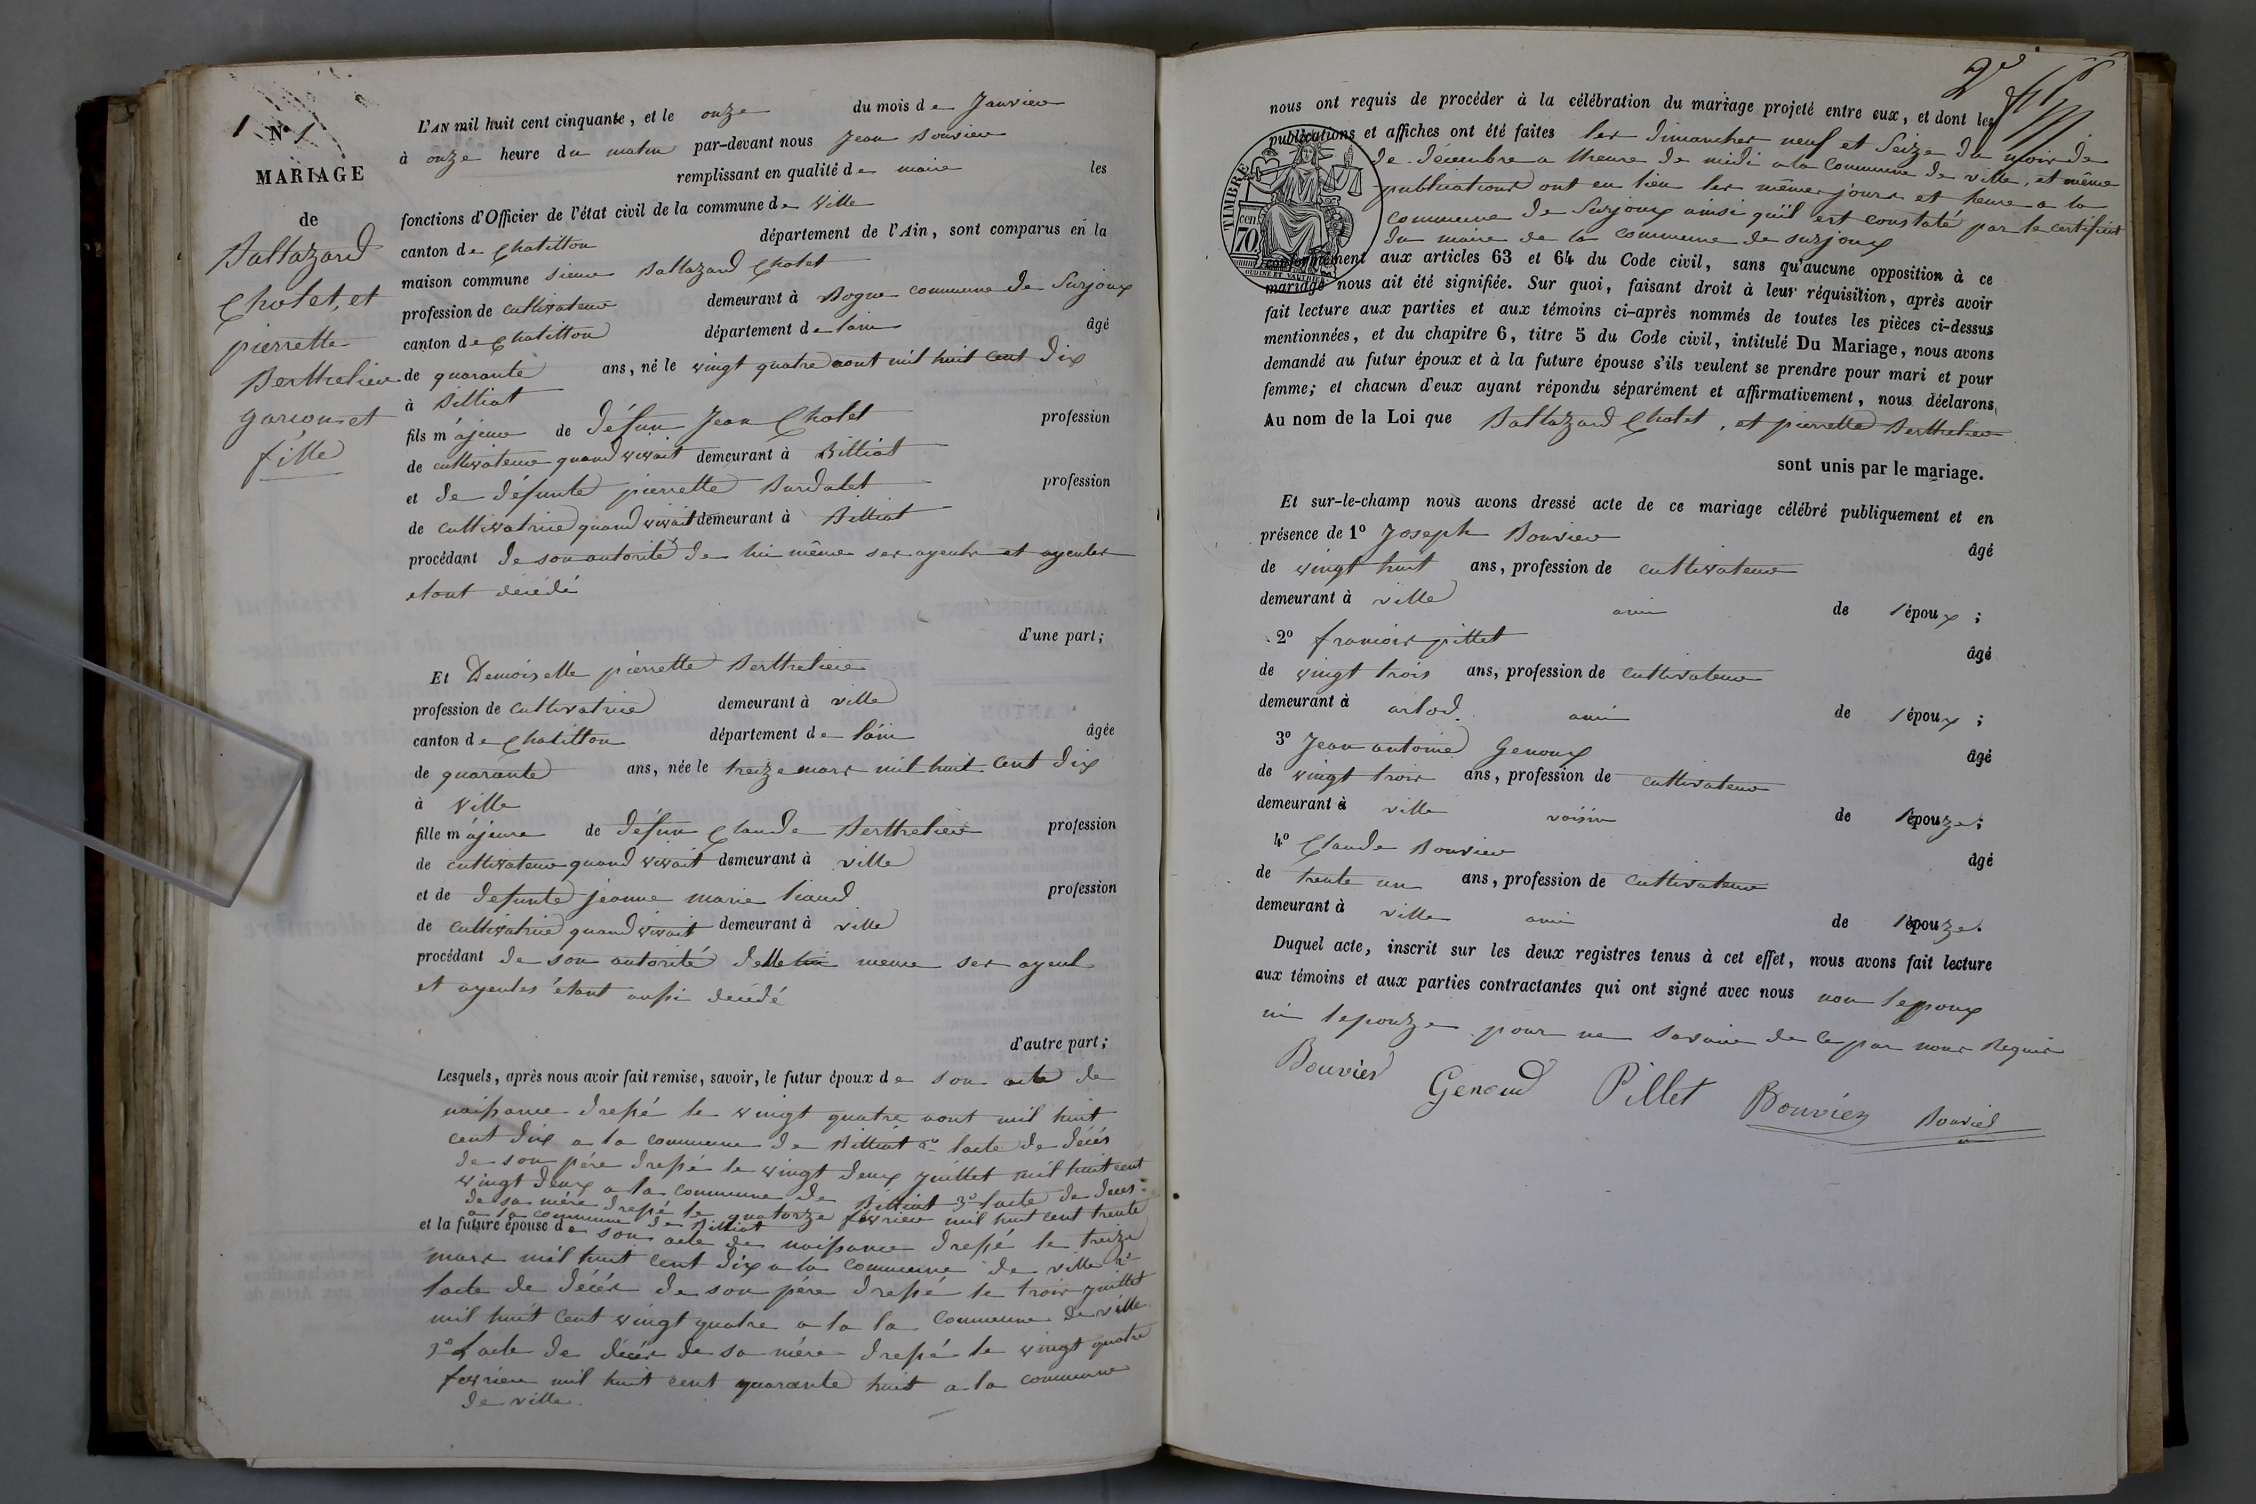 1 N° 1
MARIAGE
de
Baltazard
Cholet, et
pierrette
Berthelier
garçon et
fille
L'AN mil huit cent cinquante, et le onze du mois de Janvier
à onze heure du matin par-devant nous Jean Bouvier
remplissant en qualité de maire les
fonctions d'Officier de l'état civil de la commune de Ville
canton de Chatillon département de l'Ain, sont comparus en la
maison commune sieur Baltazard Cholet
profession de cultivateur demeurant à Bognes commune de Surjoux
canton de Chatillon département de lain âgé
de quarante ans, né le vingt quatre aout mil huit cent dix
à Billiat
fils majeur de défun Jean Cholet profession
de cultivateur quand vivait demeurant à Billiat
et de défunte pierrette Burdalet profession
de cultivatrice quand vivait demeurant à Billiat
procédant de son autorité de lui même ses ayeuls et ayeules
etant décédé
d'une part;
Et Demoiselle pierrette Berthelier
profession de cultivatrice demeurant à ville
canton de Chatillon département de lain âgée
de quarante ans, née le treize mars mil huit cent dix
à Ville
fille majeure de défun Claude Berthelier profession
de cultivateur quand vivait demeurant à ville
et de defunte jeanne marie liaud profession
de cultivatrice quand vivait demeurant à ville
procédant de son autorité delle meme ses ayeul
et ayeules étant aussi decédé
d'autre part;
Lesquels, après nous avoir fait remise, savoir, le futur époux de son acte de
naissance dressé le vingt quatre aout mil huit
cent dix a la commune de Billiat 2° lacte de décés
de son pére dressé le vingt deux juillet mil huit cent
vingt deux a la commune de Billiat 3° lacte de deces
de sa mére dressé le quatorze fevrier mil huit cent trente
a la commune de Billiat
et la future épouse de son acte de naissance dressé le treize
mars mil huit cent dix a la commune de ville 2°
lacte de décés de son pére dressé le trois juillet
mil huit cent vingt quatre a la la commune de ville
3° Lacte de décés de sa mére dressé le vingt quatre
fevrier mil huit cent quarante huit a la commune
de ville
2e
nous ont requis de procéder à la célébration du mariage projeté entre eux, et dont les
publications et affiches ont été faites les dimanches neuf et Seize du mois de
de décembre a lheure de midi a la commune de ville, et même
publications ont eu lieu les même jours et heure a la
commune de Surjoux ainsi quil est constaté par le certificat
du maire de la commune de surjoux
TIMBRE
cen. 70
OUDINÉ ET VAUTHIER
conformément aux articles 63 et 64 du Code civil, sans qu'aucune opposition à ce
mariage nous ait été signifiée. Sur quoi, faisant droit à leur réquisition, après avoir
fait lecture aux parties et aux témoins ci-après nommés de toutes les pièces ci-dessus
mentionnées, et du chapitre 6, titre 5 du Code civil, intitulé Du Mariage, nous avons
demandé au futur époux et à la future épouse s'ils veulent se prendre pour mari et pour
femme; et chacun d'eux ayant répondu séparément et affirmativement, nous déclarons,
Au nom de la Loi que Baltazard Cholet, et pierrette Berthelier
sont unis par le mariage.
Et sur-le-champ nous avons dressé acte de ce mariage célébré publiquement et en
présence de 1° Joseph Bouvier âgé
de vingt huit ans, profession de cultivateur
demeurant à ville ami de lépoux;
2° francois pillet âgé
de vingt trois ans, profession de cultivateur
demeurant à arlod. ami de lépoux;
3° Jean antoine Genoux âgé
de vingt trois ans, profession de cultivateur
demeurant à ville voisin de lépouze;
4° Claude Bouvier âgé
de trente un ans, profession de cultivateur
demeurant à ville ami de lépouze.
Duquel acte, inscrit sur les deux registres tenus à cet effet, nous avons fait lecture
aux témoins et aux parties contractantes qui ont signé avec nous non lepoux
ni lepouze pour ne savoir de ce par nous Requis
Bouvier Genoud Pillet Bouvier Bouvier